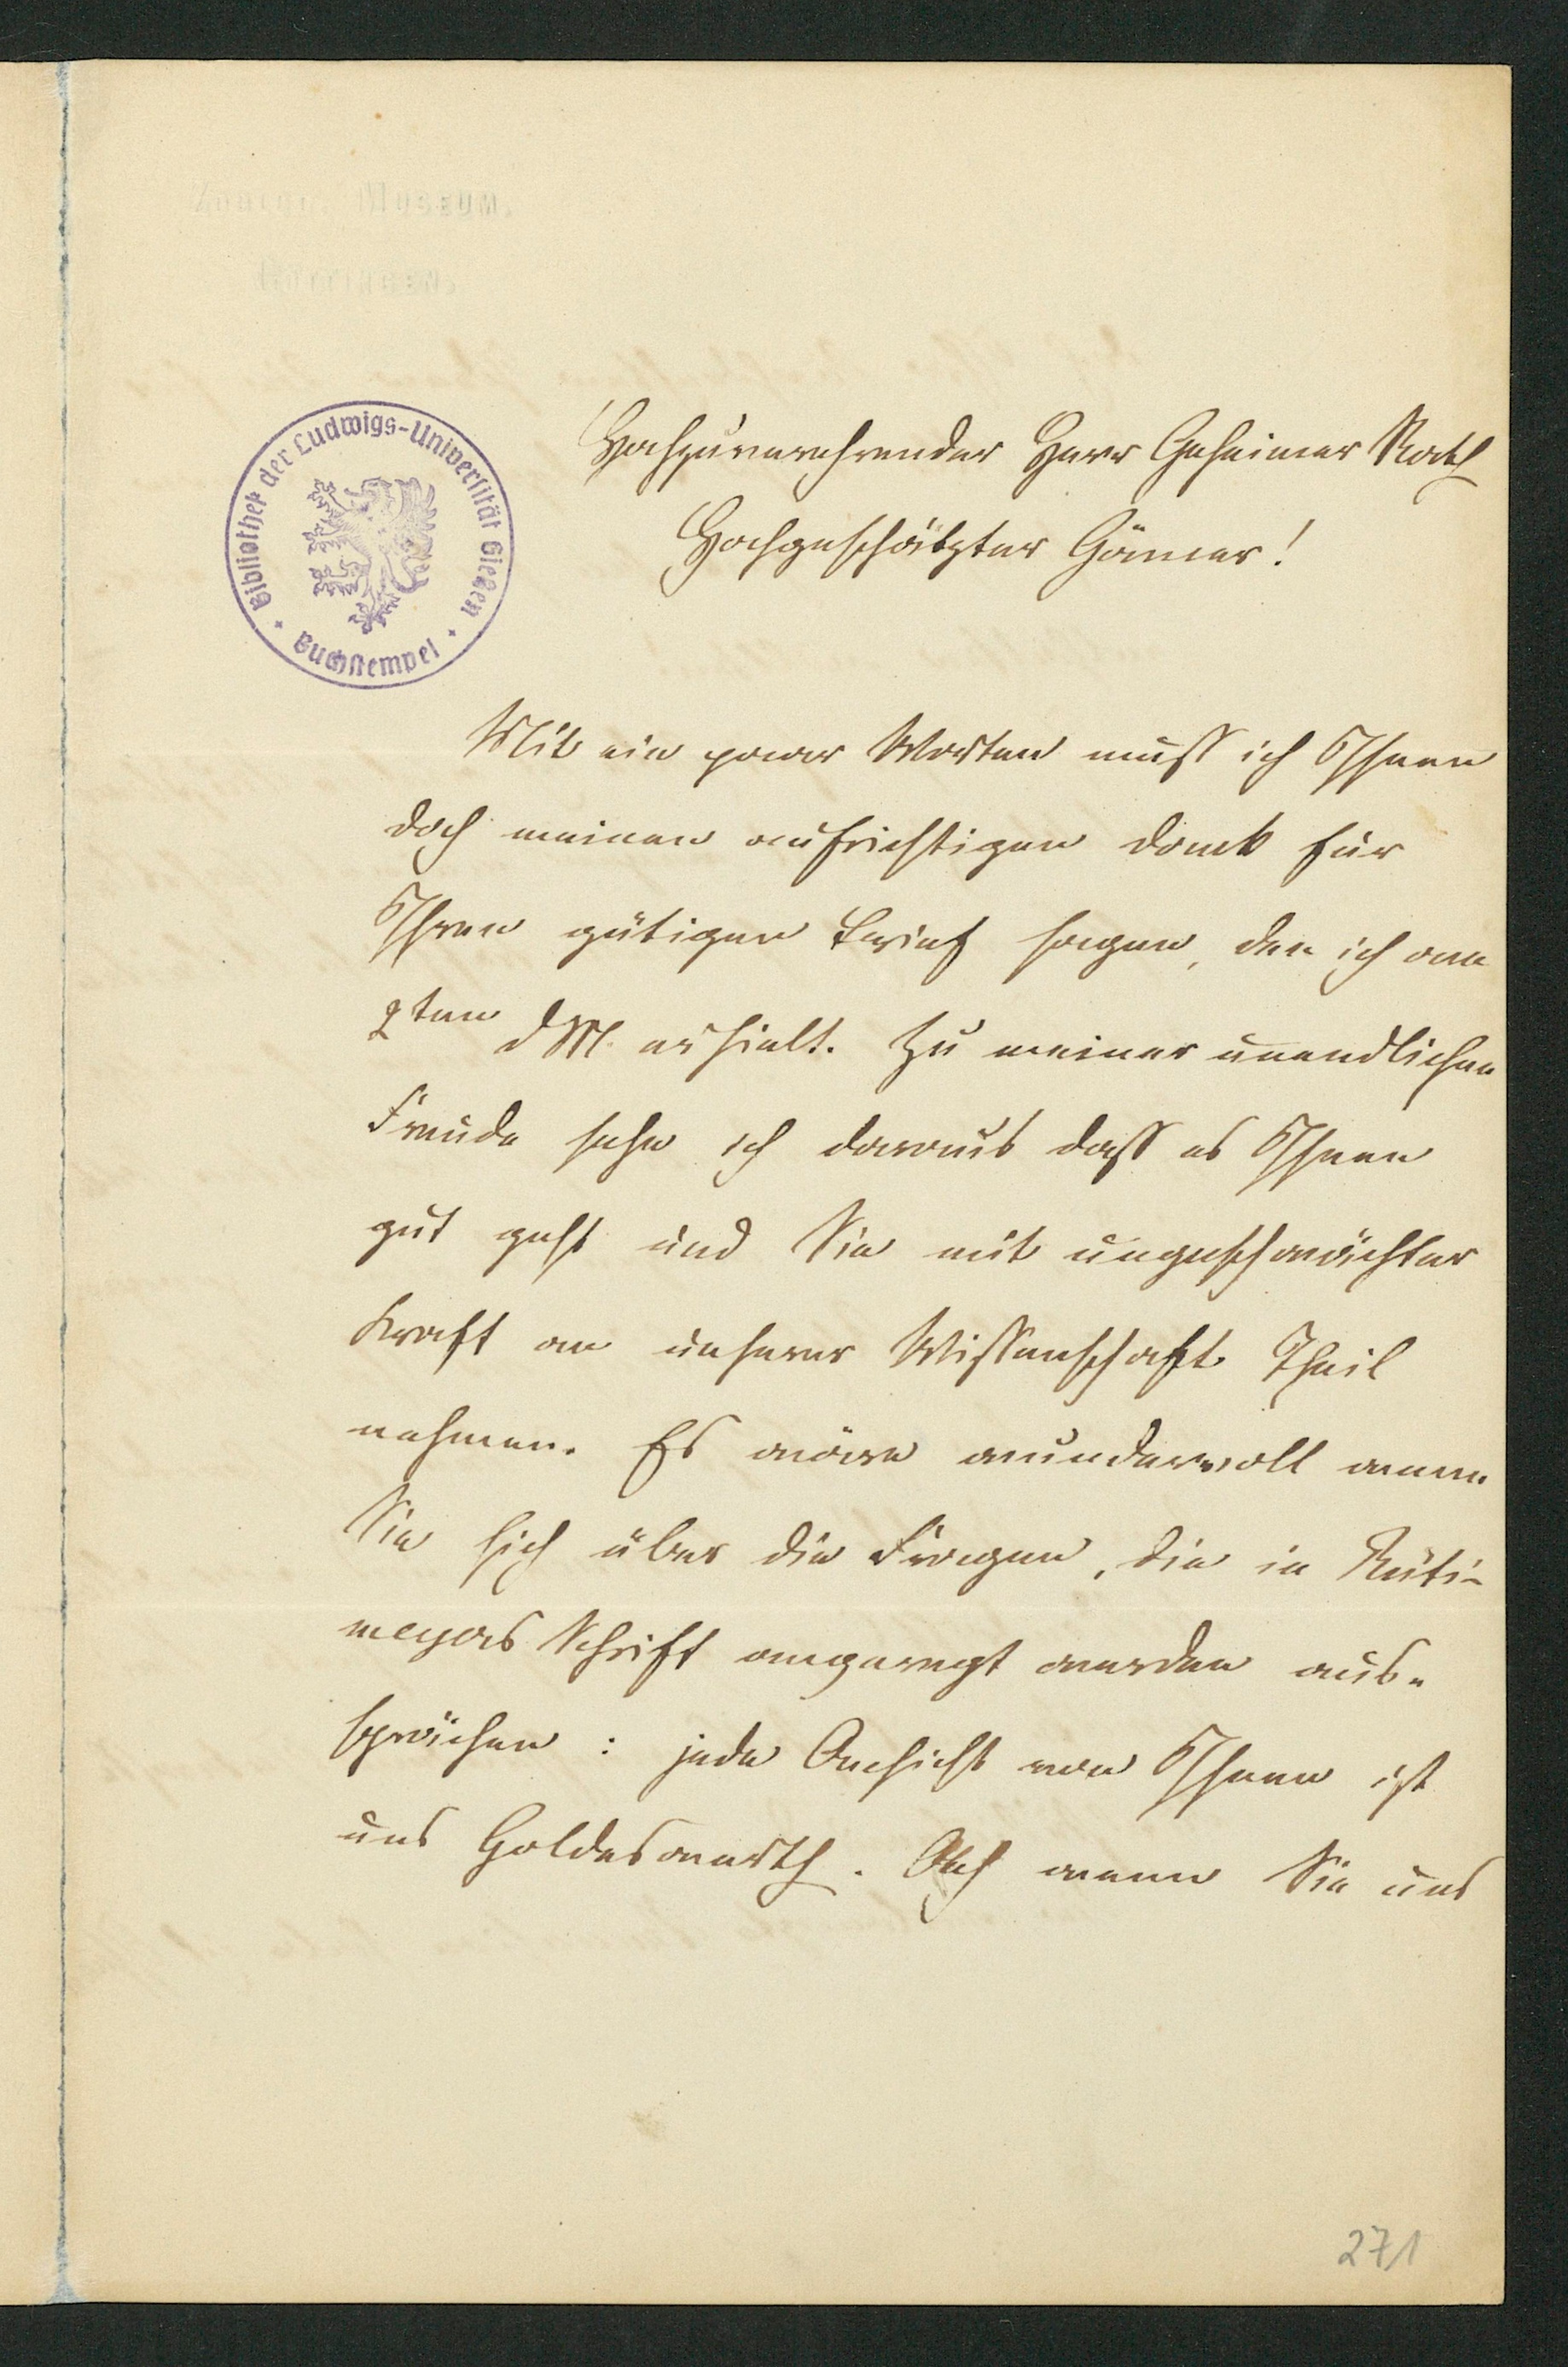 Zoolog. Museum.
Göttingen.
Bibliothek der Ludwigs-Universität Gießen
Buchstempel
Hochzuverehrender Herr Geheimer Rath
Hochgeschätzter Gönner!
Mit ein paar Worten muß ich Ihnen
doch meinen aufrichtigen Dank für
Ihren gütigen Brief sagen, den ich am
2ten d M. erhielt. Zu meiner unendlichen
Freude sehe ich daraus daß es Ihnen
gut geht und Sie mit ungeschwächter
Kraft an unserer Wissenschaft Theil
nehmen. Es wäre wundervoll wenn
Sie sich über die Fragen, die in Rüti-
meyers Schrift angeregt werden aus-
sprächen: jede Ansicht von Ihnen ist
uns Goldeswerth. Ach wenn Sie uns
271